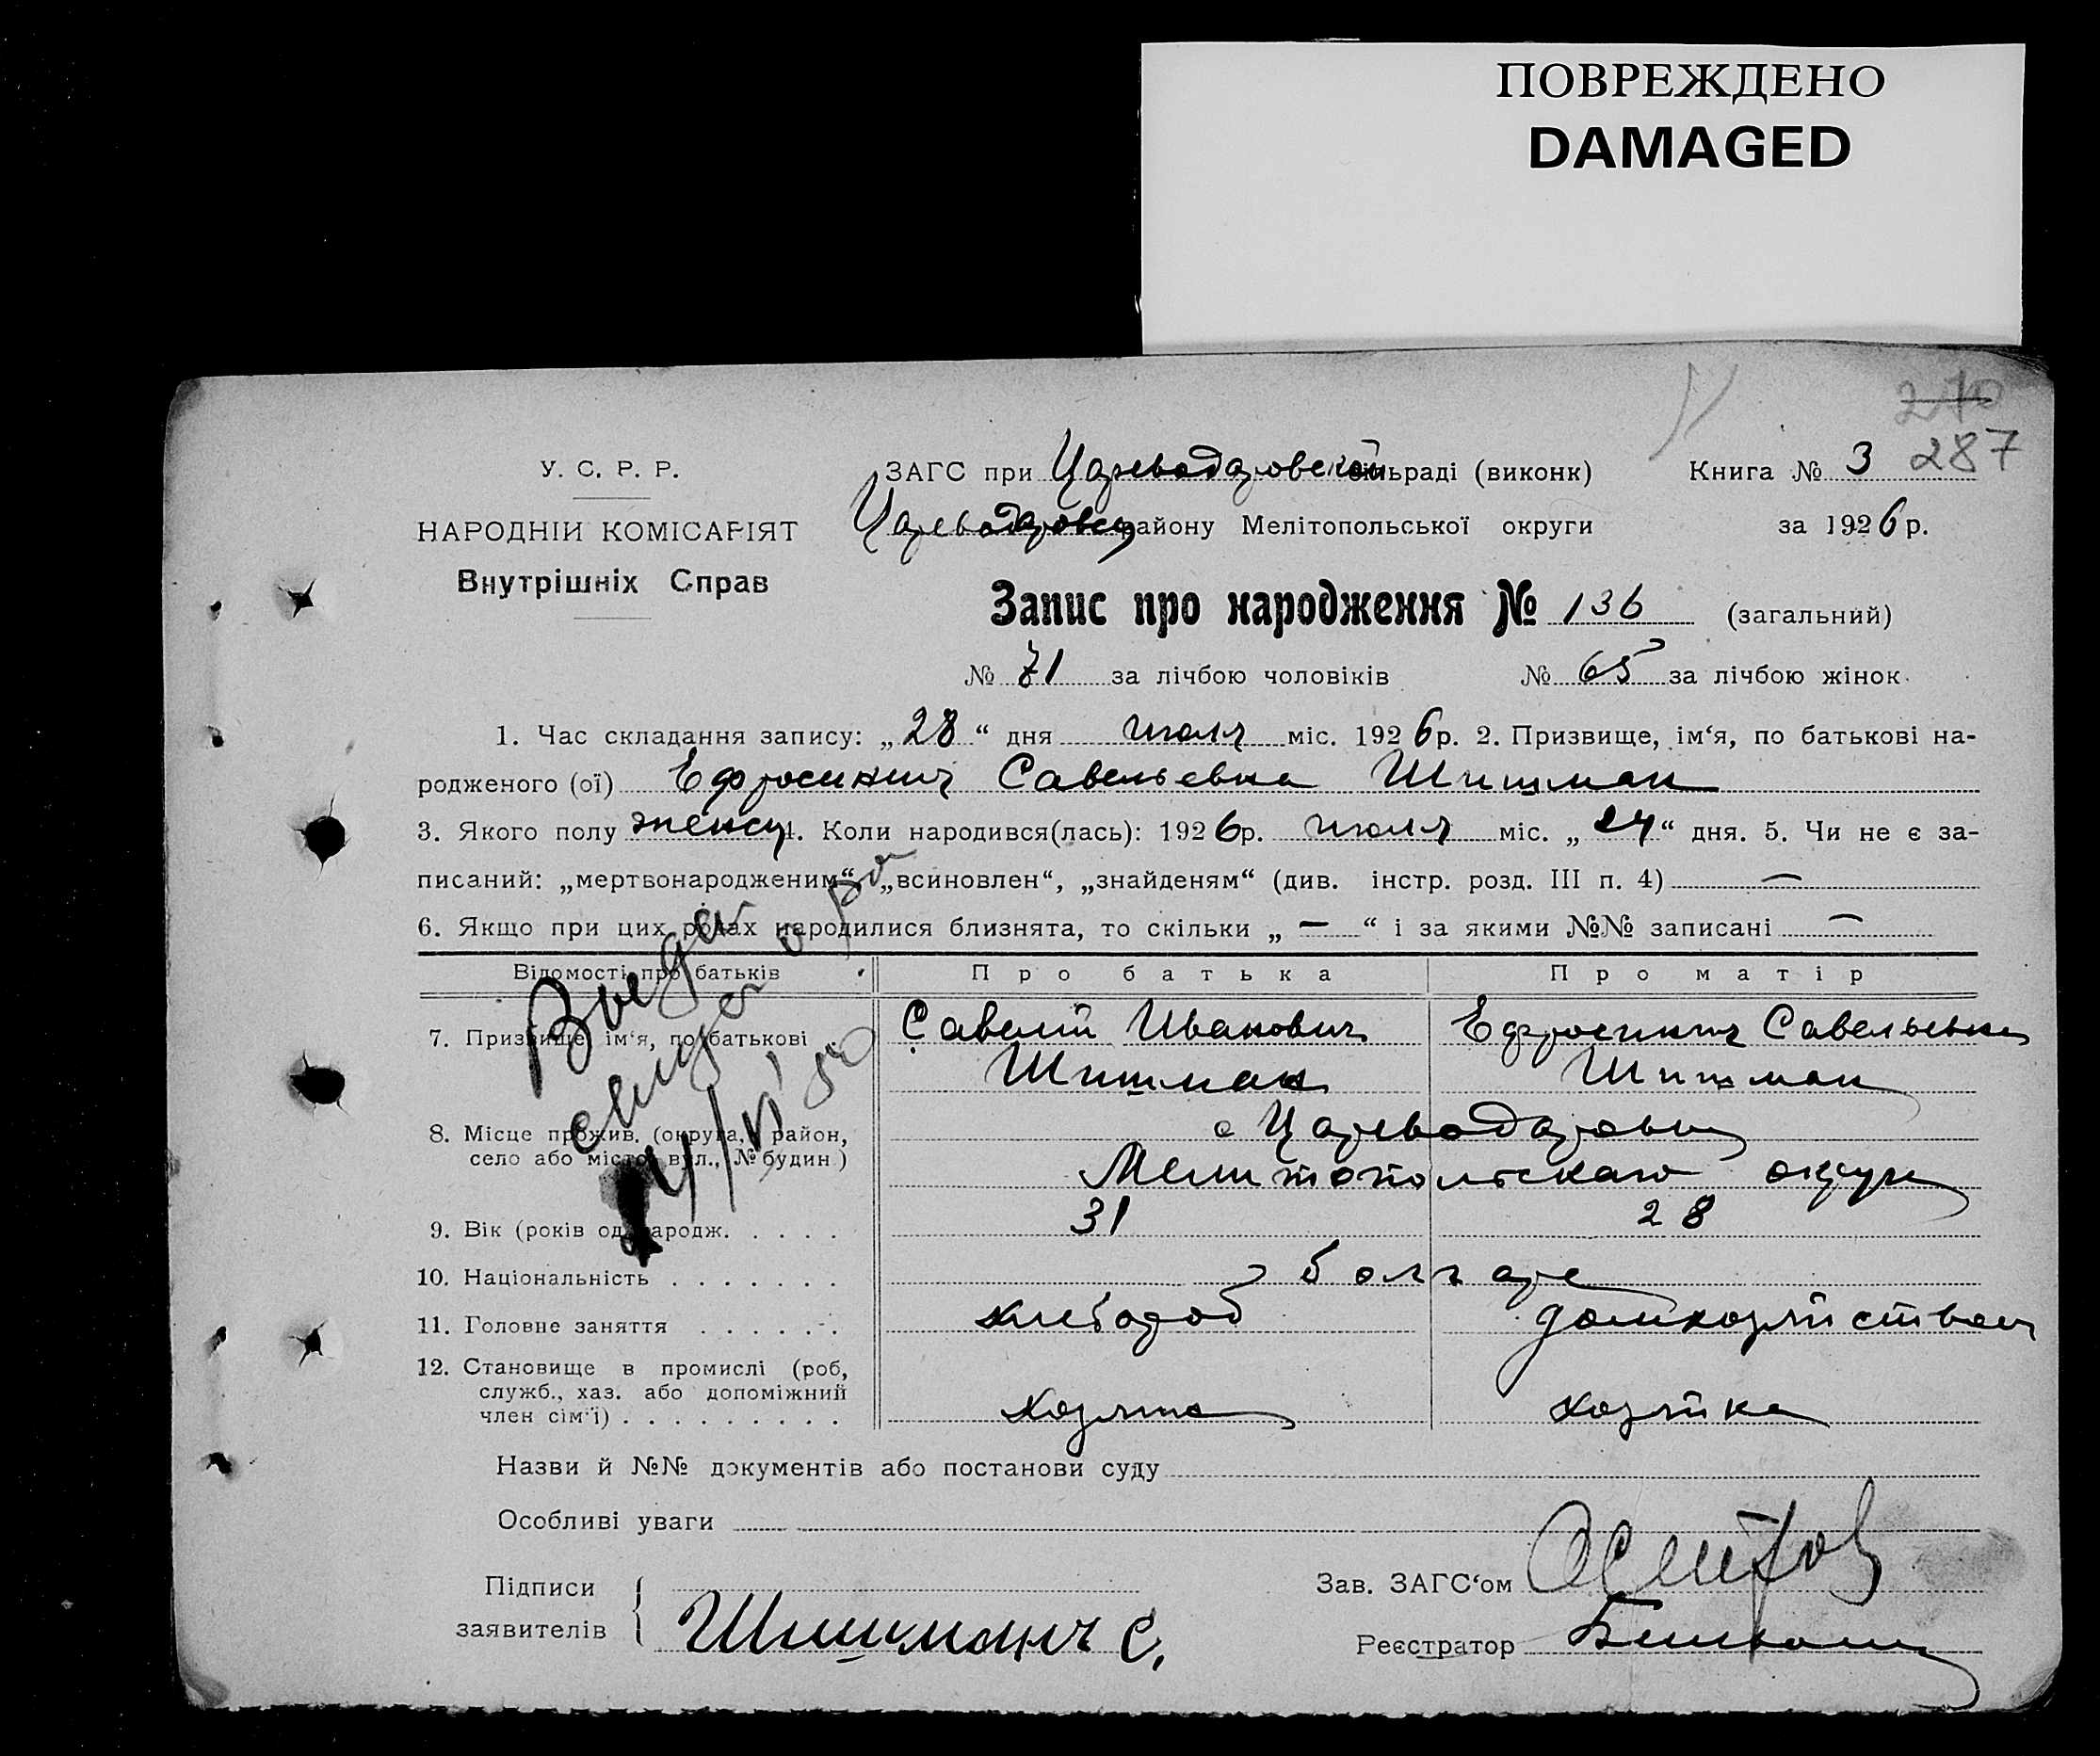 ПОВРЕЖДЕНО
DAMAGED
270
287
У. С. Р. Р.
НАРОДНІЙ КОМІСАРІЯТ
Внутрішніх Справ
ЗАГС при Цареводаровской сільраді (виконк) Книга № 3
Цареводаровск району Мелітопольської округи за 1926 р.
Запис про народження № 136 (загальний)
№ 71 за лічбою чоловіків № 65 за лічбою жінок
1. Час складання запису: „28“ дня июля міс. 1926 р. 2. Призвище, ім‘я, по батькові на-
родженого (ої) Ефросиния Савельевна Шишман
3. Якого полу женск 4. Коли народився(лась): 1926 р. июля міс. „24“ дня. 5. Чи не є за-
писаний: „мертвонародженим“, „всиновлен“, „знайденям“ (див. інстр. розд. III п. 4) —
6. Якщо при цих родах народилися близнята, то скільки „ — “ і за якими №№ записані —
Відомості про батьків Про батька Про матір
7. Призвище, ім‘я, по батькові Савелий Иванович Ефросиния Савельевна
Шишман Шишман
8. Місце прожив. (округа, район, с Цареводаровка
село або місто, вул., № будин.) Мелитопольскаго округа
9. Вік (років од народж. 31 28
10. Національність болгаре
11. Головне заняття хлебороб домхозяйством
12. Становище в промислі (роб,
служб., хаз. або допоміжний
член сім‘ї) хозяин хозяйка
Назви й №№ документів або постанови суду
Особливі уваги
Підписи Зав. ЗАГС‘ом
заявителів Шишманъ С. Реєстратор